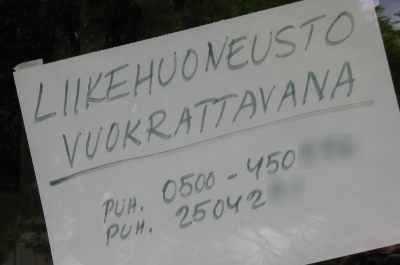 LIIKEHUONEUSTO
VUOKRATTAVANA
PUH. 0500-450
PUH. 25042